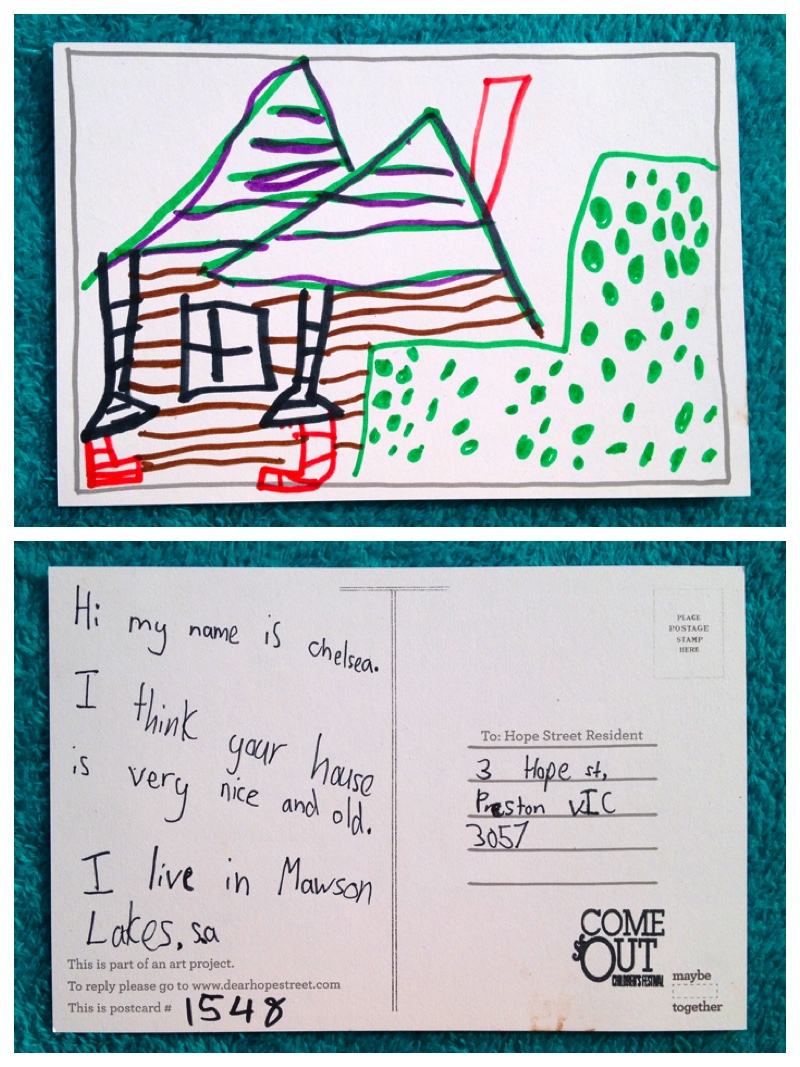 Hi my name is chelsea.
I think your house
is very nice and old.
I live in Mawson
Lakes, sa
This is part of an art project.
To reply please go to www.dearhopestreet.com
This is postcard # 1548
PLACE
POSTAGE
STAMP
HERE
To: Hope Street Resident
3 Hope st,
Preston VIC
3057
COME
OUT
CHILDREN'S FESTIVAL
maybe
together